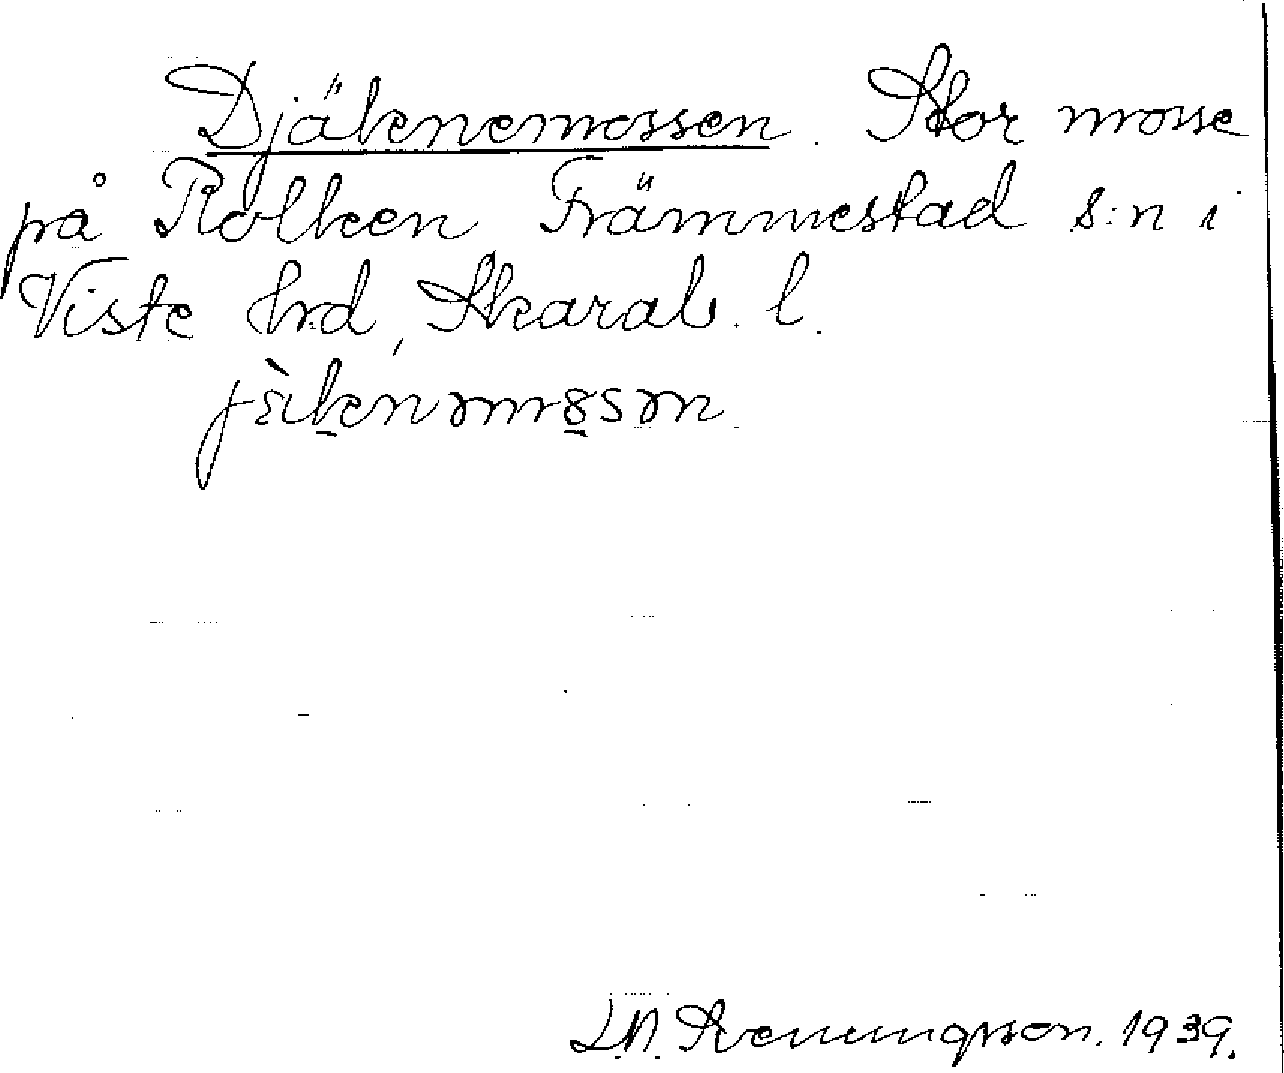 Djäknemossen. Stor mosse
på Rolken Främmestad s:n i
Viste hrd, Skarab. l.
L.N. Svenungsson. 1939.